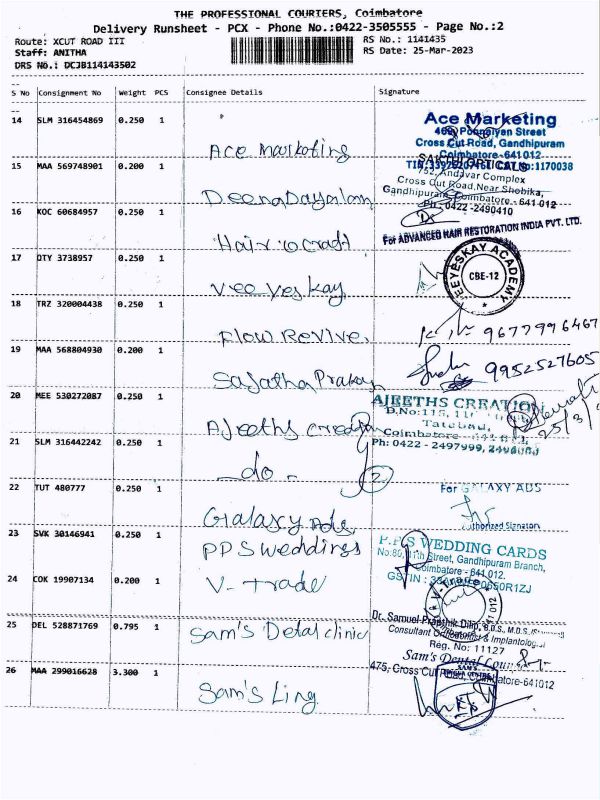 THE PROFESSIONAL COURIERS, Coimbatore
Delivery Runsheet - PCX - Phone No.:0422-3505555 - Page No.:2
Route: XCUT ROAD III
RS No.: 1141435
Staff: ANITHA
RS Date: 25-Mar-2023
DRS No.: DCJB114143502
S No Consignment No Weight PCS Consignee Details Signature
14 SLM 316454869 0.250 1
Ace Marketing
Ace Marketing
Ponnaiyan Street
Cross Cut Road, Gandhipuram
Coimbatore-641012
15 MAA 569748901 0.200 1
Deenadayalan
SAKTHI OPTICALS
752, Andavar Complex
Cross Cut Road, Near Shobika,
Gandhipuram, Coimbatore - 641 012
PH: 0422-2490410
16 KOC 60684957 0.250 1
Hair o craft
For ADVANCED HAIR RESTORATION INDIA PVT. LTD.
17 OTY 3738957 0.250 1
Vee yes Kay
JEEYESKAY ACADEMY
CBE-12
18 TRZ 320004438 0.250 1
Flow Revive
9677996467
19 MAA 568804930 0.200 1
Sajatha Prakay
9952527605
20 MEE 530272087 0.250 1
Ajeeths creation
AJEETHS CREATION
Tatabad,
Coimbatore
Ph: 0422 - 2497999,
25/3/
21 SLM 316442242 0.250 1
- do -
2
22 TUT 480777 0.250 1
Galaxy Ads
For GALAXY ADS
Authorized Signatory
23 SVK 30146941 0.250 1
PPS Weddings
P.P.S WEDDING CARDS
Street, Gandhipuram Branch,
Coimbatore - 641 012.
24 COK 19907134 0.200 1
V-Trade
25 DEL 528871769 0.795 1
Sam's Detal clinic
Dr. Samuel Pradthik Dilip, B.D.S., M.D.S.,
Consultant Orthodontist & Implantologist
Reg. No: 11127
Sam's Dental
475, Cross Cut Road, Coimbatore-641012
26 MAA 299016628 3.300 1
Sam's Ling